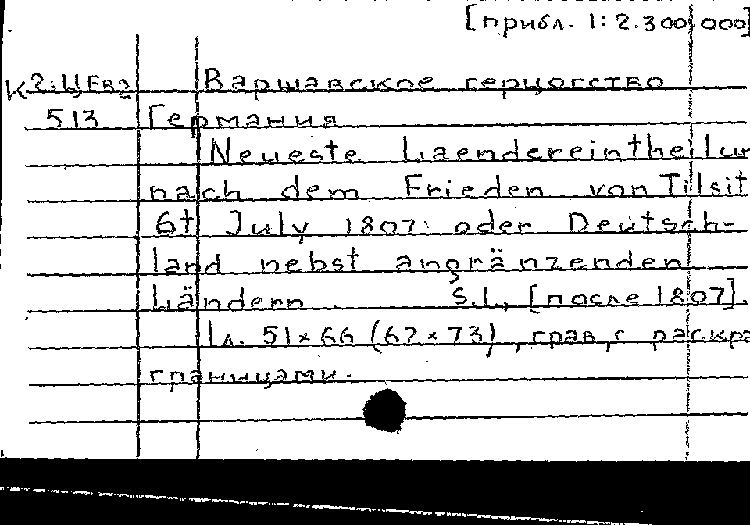 [прибл. 1:2.300.000]
К2:ЦЕв2 Варшавское герцогство
513 Германия
Neueste Laendereintheilun
nach dem Frieden von Tilsit
6t July 1807: oder Deutsch-
land nebst angränzenden
Ländern. S.l., [после 1807].
1л. 51×66 (62×73), грав, с раскра
границами.